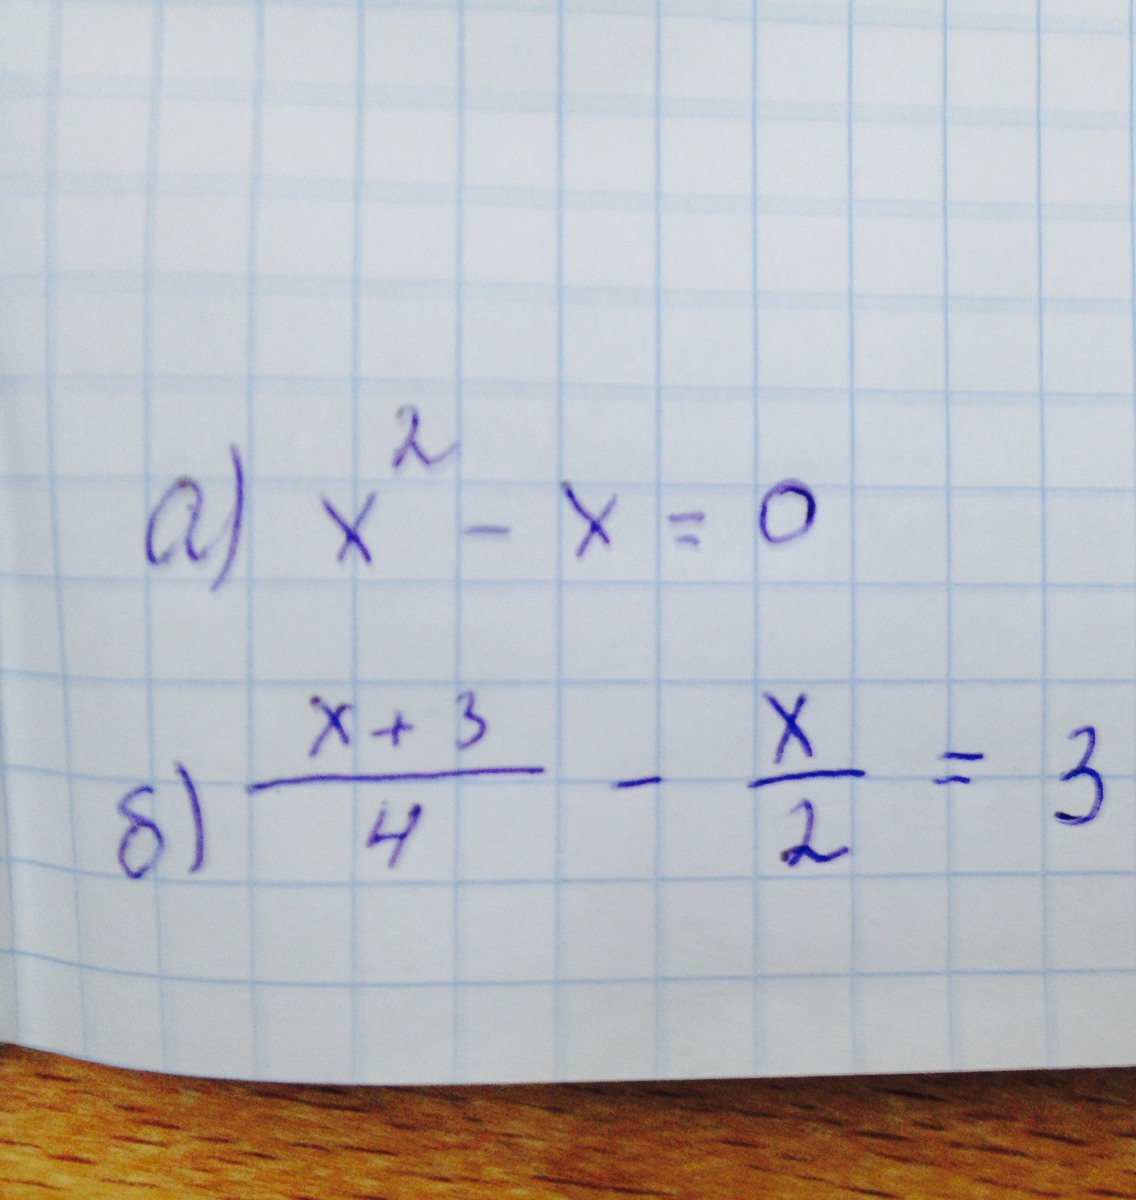 а) x² - x = 0
б) \frac{x + 3}{4} - \frac{x}{2} = 3